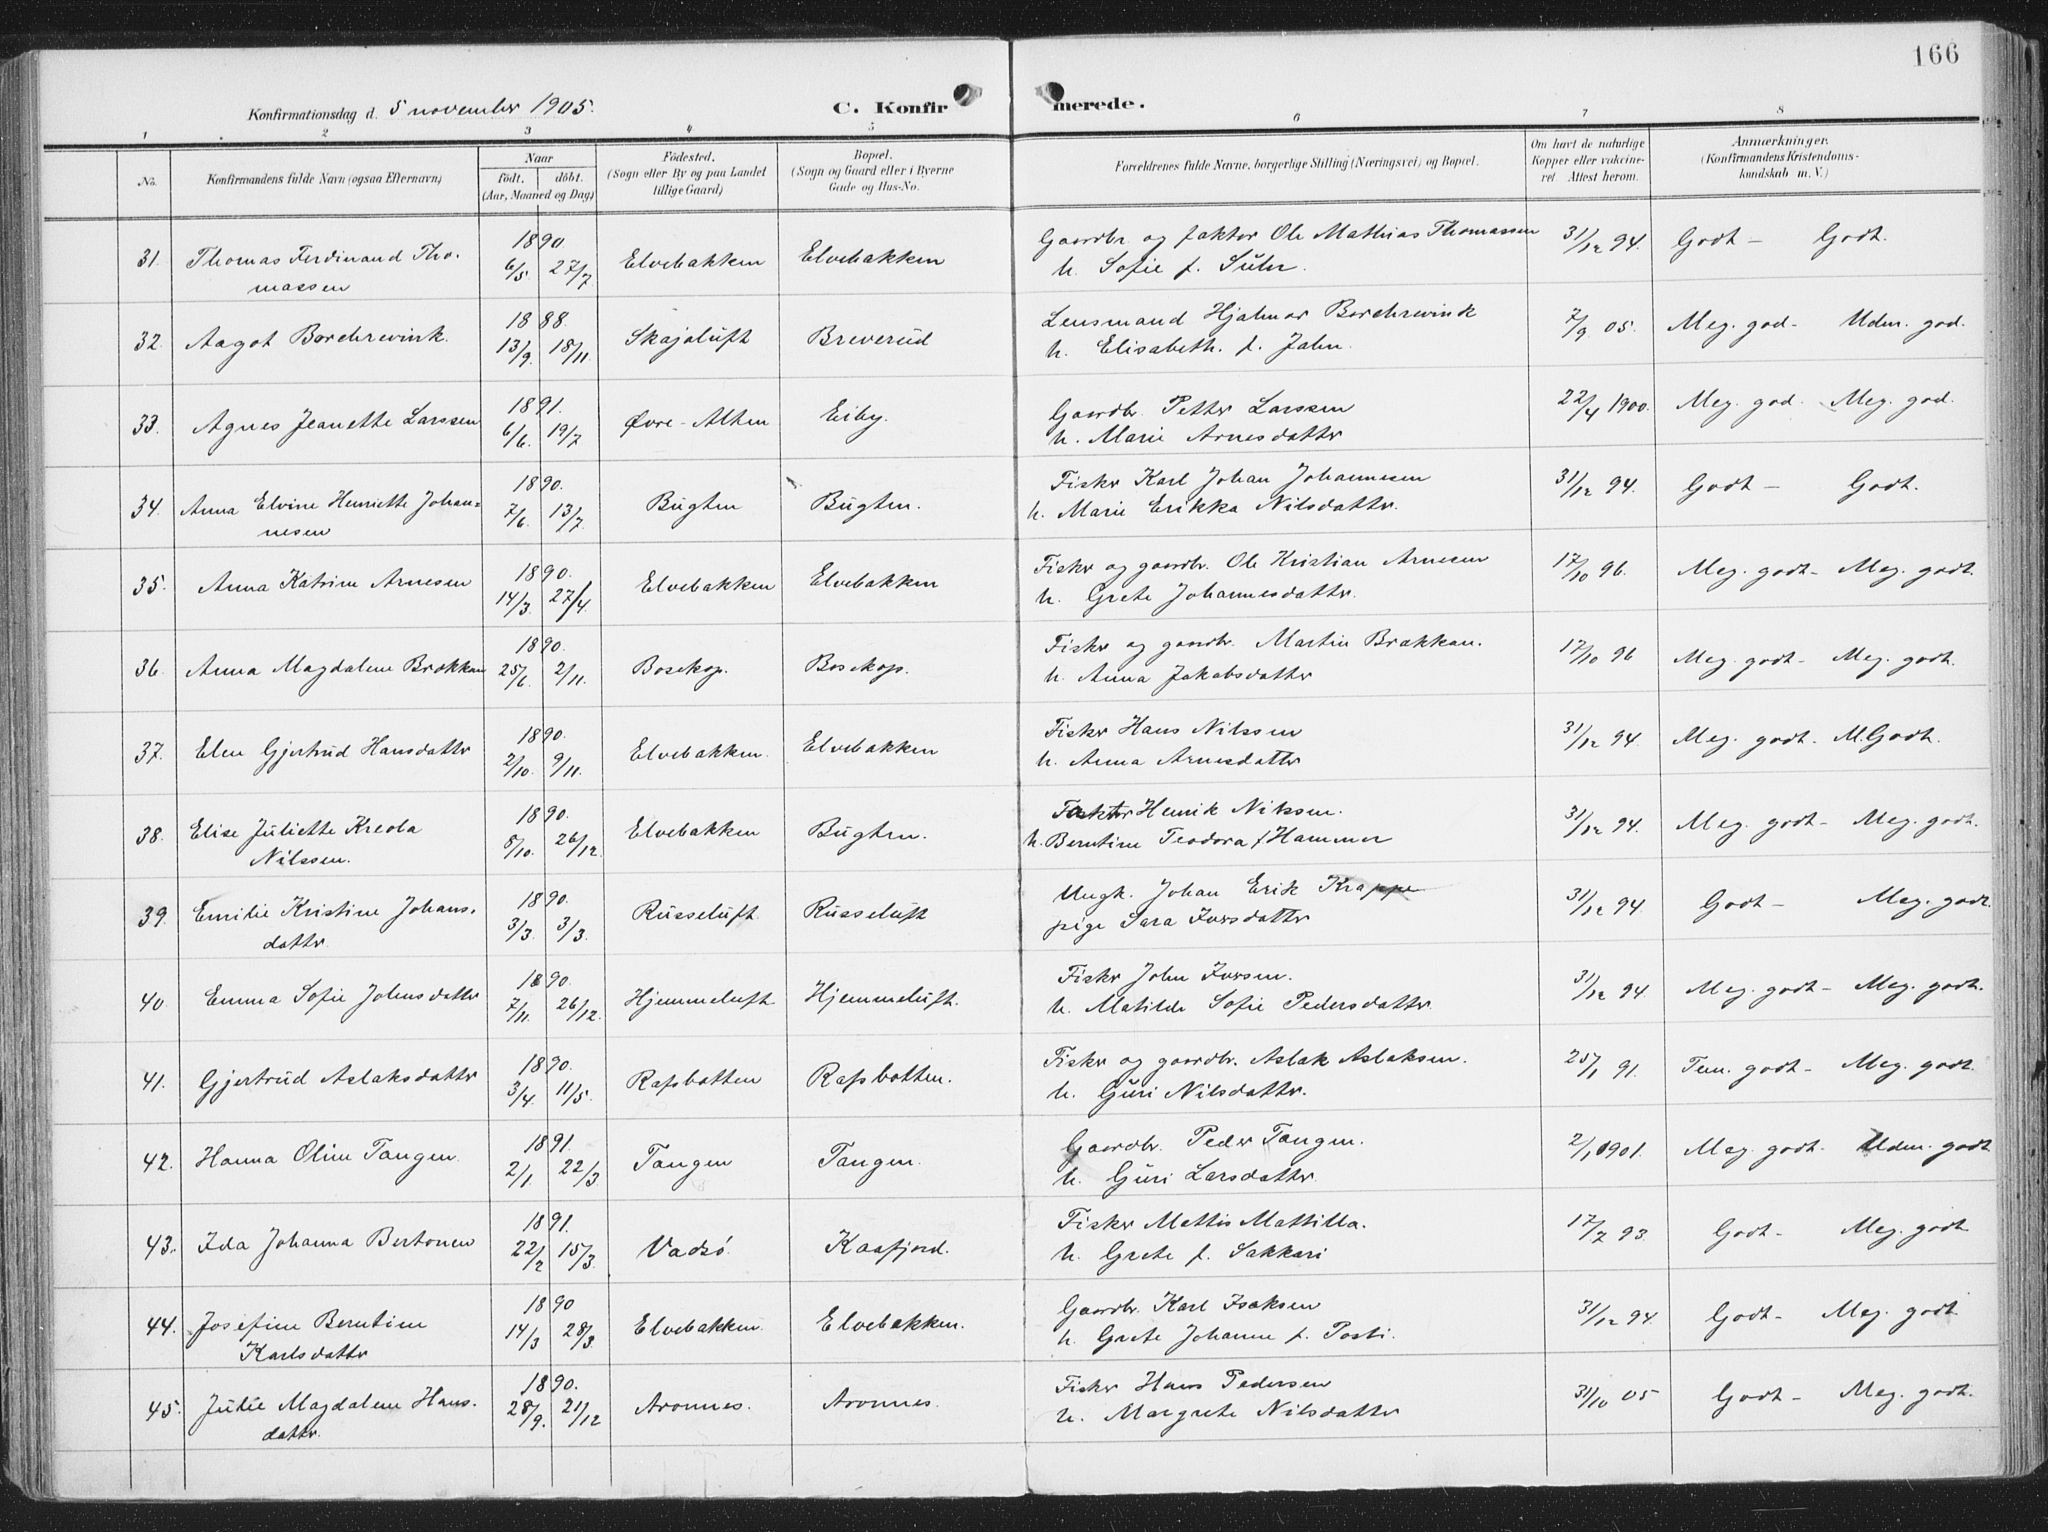 166
Konfirmationsdag d. 5 november 1905.
C. Konfirmerede.
1 2 3 4 5 6 7 8
No. Konfirmandens fulde Navn (ogsaa Efternavn) Naar født. døbt. (Aar, Maaned og Dag) Fødested. (Sogn eller By og paa Landet tillige Gaard) Bopæl. (Sogn og Gaard eller i Byerne Gade og Hus-No. Forældrenes fulde Navne, borgerlige Stilling (Næringsvei) og Bopæl. Om havt de naturlige Kopper eller vaccineret Attest herom. Anmærkninger. (Konfirmandens Kristendomskundskab m. V.)
1890. Gaardbr og faktor Ole Mathias Thomassen 31/12 94. Godt - Godt.
31. Thomas Ferdinand Tho- 6/5 27/7 Elvebakken Elvebakken
massen h. Sofie f. Suhr.
1888. Lensmand Hjalmar Borchrevink
32. Aagot Borchrevink. 13/9 18/11. Skajaluft Breverud 7/9 05. Meg. god - Udm. god.
h. Elisabeth. f. Jahn.
1891. Gaardbr. Petter Larssen 22/4 1900. Meg. god. Meg. god.
33. Agnes Jeanette Larssen 6/6. 19/7 Øvre-Alten Eiby.
h. Marie Arnesdatter
1890. Fisker Karl Johan Johannesen 31/12 94. Godt - Godt.
34. Anna Elvine Henriette Johan= 7/6. 13/7 Bugten Bugten.
nesen h. Marie Erikka Nilsdatter.
1890. Fisker og gaardbr. Ole Kristian Arnesen 17/10 96.
35. Anna Katrine Arnesen 14/3. 27/4. Elvebakken Elvebakken Meg. godt - Meg. godt.
h. Grete Johannesdatter.
1890. Fisker og gaardbr. Martin Brækkan. 17/10 96
36. Anna Magdalene Brækkan 25/6. 2/11. Bosekop. Bosekop. Meg. godt - Meg. godt.
h. Anna Jakobsdatter
1890. Fisker Hans Nilssen 31/12 94. Meg. godt. M.Godt.
37. Elen Gjertrud Hansdatter 2/10. 9/11. Elvebakken. Elvebakken
h. Anna Arnesdatter
1890. Faktor Henrik Nilssen. 31/12 94. Meg. godt - Meg. godt.
38. Elise Juliette Kreola 8/10. 26/12. Elvebakken Bugten.
Nilssen. h. Berntine Teodora f Hammer
1890. Ungk. Johan Erik Krappe 31/12 94. Godt - Meg. godt.
39. Emilie Kristine Johans- 3/3. 3/3. Russeluft Russeluft
datter. pige Sara Iversdatter
1890. Fisker John Iversen. 31/12 94.
40. Emma Sofie Johnsdatter 7/11. 26/12. Hjemmeluft Hjemmeluft. Meg. godt - Meg. godt.
h. Matilde Sofie Pedersdatter.
1890. Fisker og gaardbr. Aslak Aslaksen. 25/1 91. Tem. godt - Meg. godt.
41. Gjertrud Aslaksdatter 3/4. 11/5. Rafsbotten Rafsbotten.
h. Guri Nilsdatter.
1891. Gaardbr. Peder Tangen. 2/1 1901. Meg. godt. Udm. godt
42. Hanna Oline Tangen. 2/1. 22/3. Tangen Tangen.
h. Guri Larsdatter.
1891. Fisker Mattis Mattilla. 17/7 93. Godt - Meg. godt.
43. Ida Johanna Bertonen 22/2 15/3. Vadsø Kaafjord.
h. Grete f. Sakkari
1890 Gaardbr. Karl Isaksen 31/12 94. Godt - Meg. godt.
44. Josefine Berntine 14/3 28/3. Elvebakken. Elvebakken.
Karlsdatter h. Grete Johanne f. Posti.
1890. Fisker Hans Pedersen 31/10 05 Godt - Meg. godt.
45. Julie Magdalene Hans. 28/9. 21/12 Aronnes. Aronnes.
datter. h. Margrete Nilsdatter